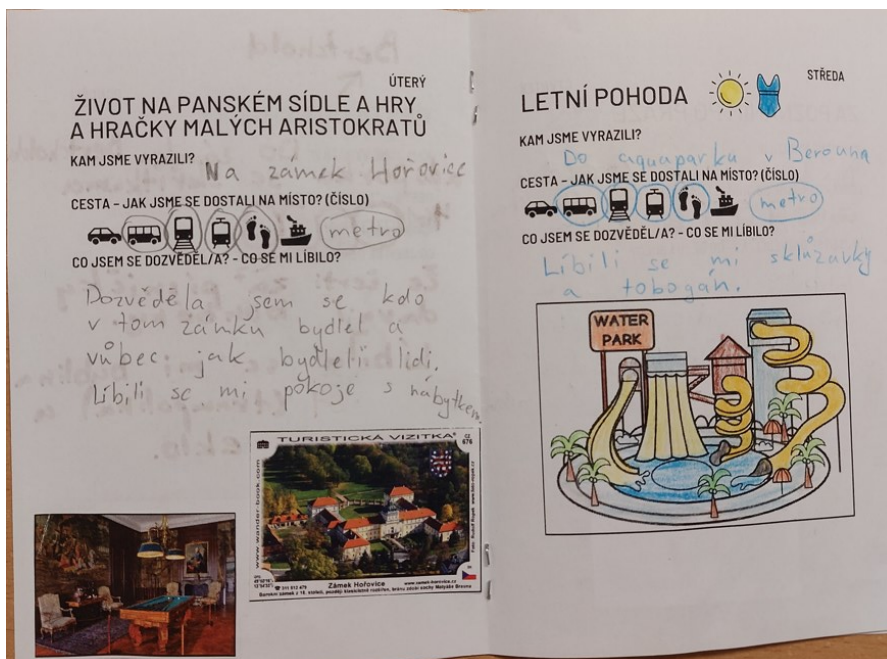 ÚTERÝ
ŽIVOT NA PANSKÉM SÍDLE A HRY
A HRAČKY MALÝCH ARISTOKRATŮ
KAM JSME VYRAZILI?
Na zámek Hořovice
CESTA – JAK JSME SE DOSTALI NA MÍSTO? (ČÍSLO)
metro
CO JSEM SE DOZVĚDĚL/A? - CO SE MI LÍBILO?
Dozvěděla jsem se kdo
v tom zámku bydlel a
vůbec jak bydleli lidi.
Líbili se mi pokoje s nábytkem
TURISTICKÁ VIZITKA
CZ
676
www.wander-book.com
Zámek Hořovice
www.zamek-horovice.cz
STŘEDA
LETNÍ POHODA
KAM JSME VYRAZILI?
Do aquaparku v Berouna
CESTA – JAK JSME SE DOSTALI NA MÍSTO? (ČÍSLO)
metro
CO JSEM SE DOZVĚDĚL/A? - CO SE MI LÍBILO?
Líbili se mi sklůzavky
a tobogán.
WATER
PARK